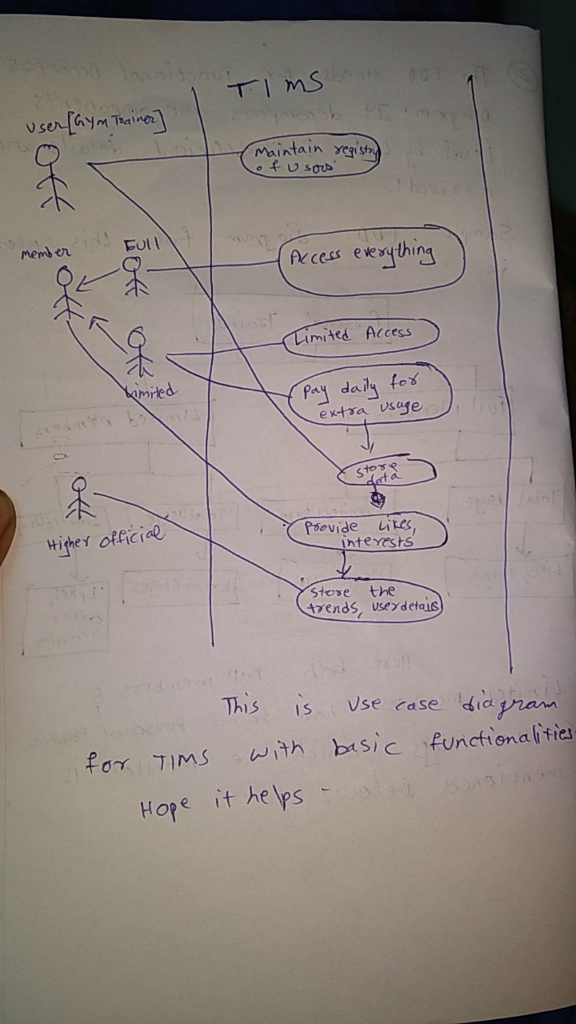 TIMS
User [Gym Trainer]
Maintain registry
of Users
Member
Full
Access everything
Limited Access
Limited
Pay daily for
extra usage
Store
data
Higher official
Provide Likes,
interests
Store the
trends, user details
This is use case diagram
for TIMS with basic functionalities.
Hope it helps -